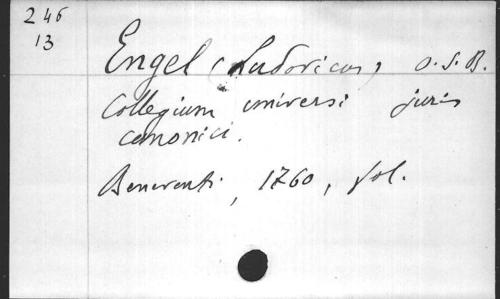 246
13
Engel (Ludovicus) O.S.B.
Collegium universi juris
canonici.
Beneventi, 1760, fol.